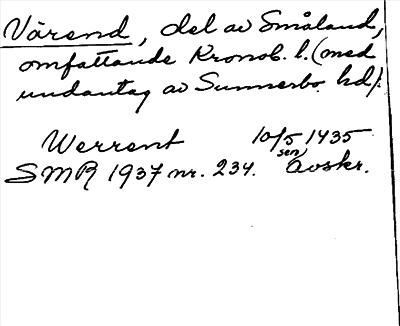 Värend, del av Småland,
omfattande Kronob. l. (med
undantag av Sunnerbo hd).
Werrent 10/5 1435
sen.
SMR 1937 nr. 234. Avskr.